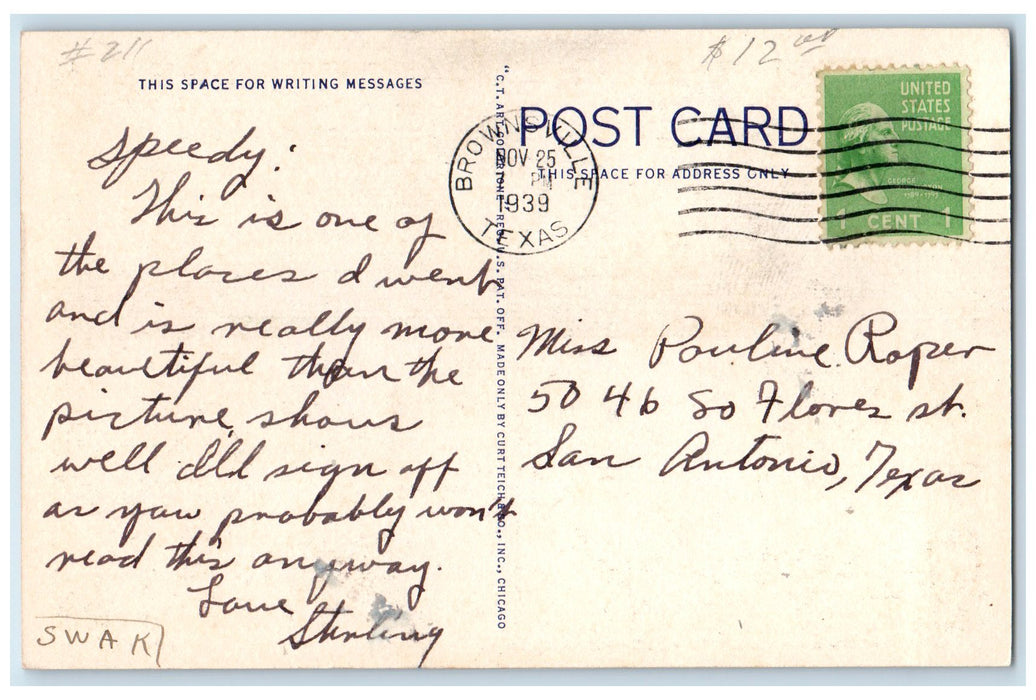 #211
$12.00
THIS SPACE FOR WRITING MESSAGES
Speedy:
This is one of
the places I went
and is really more
beautiful than the
picture shows
well I'll sign off
as you probably won't
read this anyway.
Love
Sterling
SWAK
"C.T. ART-COLORTONE" REG. U.S. PAT. OFF. MADE ONLY BY CURT TEICH & CO., INC., CHICAGO
POST CARD
THIS SPACE FOR ADDRESS ONLY
BROWNSVILLE
NOV 25
PM
1939
TEXAS
UNITED
STATES
POSTAGE
GEORGE WASHINGTON
1789-1797
1 CENT 1
Miss Pauline Roper
5046 So Flores st.
San Antonio, Texas